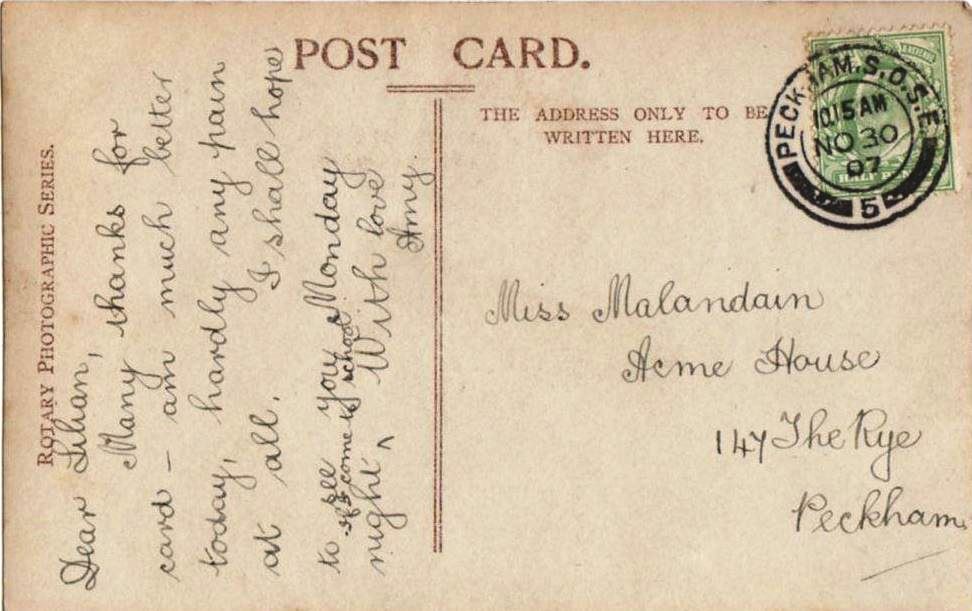 POST CARD.
THE ADDRESS ONLY TO BE
WRITTEN HERE.
ROTARY PHOTOGRAPHIC SERIES.
PECKHAM.S.O.S.E.
10.15 AM
NO 30
07
5
HALF
Dear Lilian,
Many thanks for
card – am much better
today, hardly any pain
at all. I shall hope
to see you Monday
if I come to school
night ^ With love
Amy.
Miss Malandain
Acme House
147 The Rye
Peckham